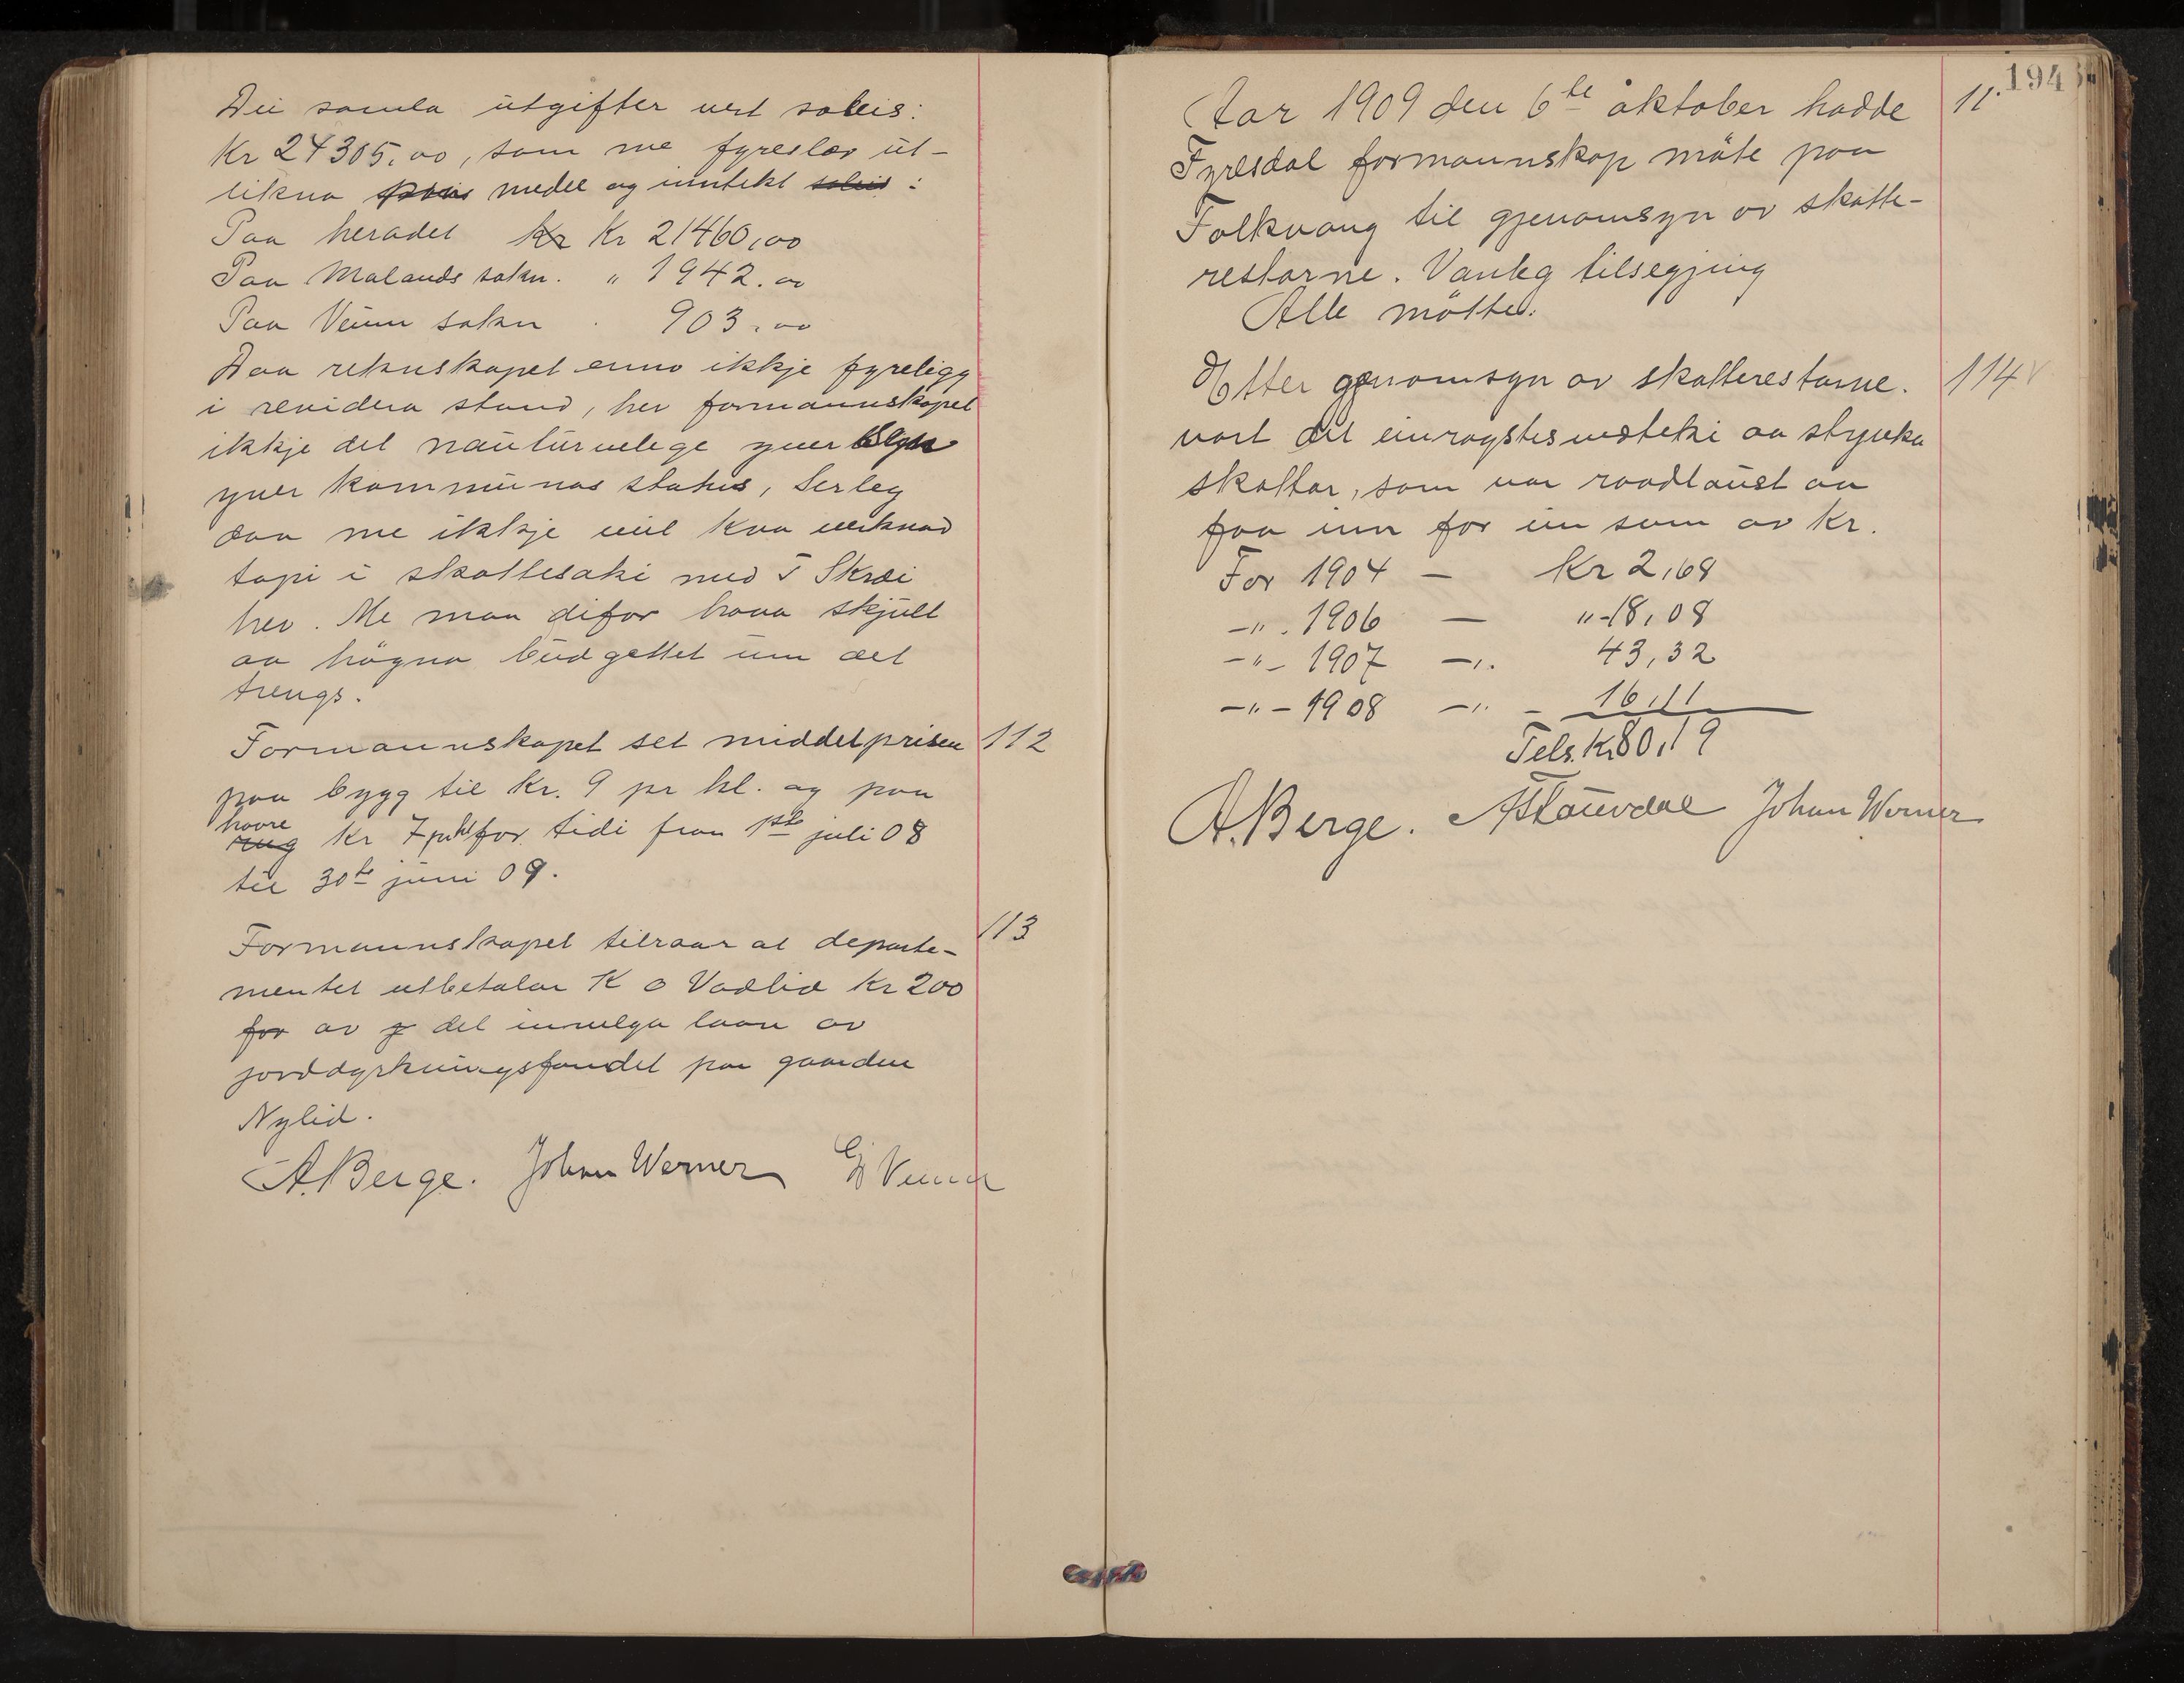 Dei samla utgifter vert soleis:
Kr 24305,00, som me fyreslær ut-
likna medel og inntekt soleis:
Paa heradet Kr Kr 21460,00
Paa Molands sokn. " 1942.00
Paa Veum sokn . 903.00
Daa rekneskapet enno ikkje fyreligg
i revidera stand, hev formannskapet
ikkje det nauturvelege yver
yver kommunas status, serleg
daa me ikkje veit kva verknad
tapi i skattesaki med T Skræi
hev. Me maa difor hava skjult
aa högna budgettet um det
trengs.
Formannskapet set middelprisen 112
paa bygg til Kr. 9 pr hl. og paa
havre
rug Kr 7 pr hl for tidi fraa 1ste juli 08
til 30te juni 09.
Formannskapet tilraar at departe- 113
mentet utbetalar K O Vadlid Kr 200
for av det innvelga laan av
jorddyrkningsfondet paa gaarden
Nylid.
A. Berge. Johan Werner Veum
194
Aar 1909 den 6te oktober hadde 11.
Fyresdal formannskap möte paa
Folkvang til gjenomsyn av skatte-
restarne. Vanleg tilsegjing
Alle mötte.
Etter gjenomsyn av skatterestarne. 114
vart det einrøystes vedteki aa stryka
skattar, som var raadlaust aa
faa inn for ein sum av Kr.
For 1904 — Kr 2,68
—". 1906 — "-18,08
—"— 1907 —". 43,32
—"— 1908 —". — 16,11
Tels. Kr 80,19
A. Berge. Johan Werner